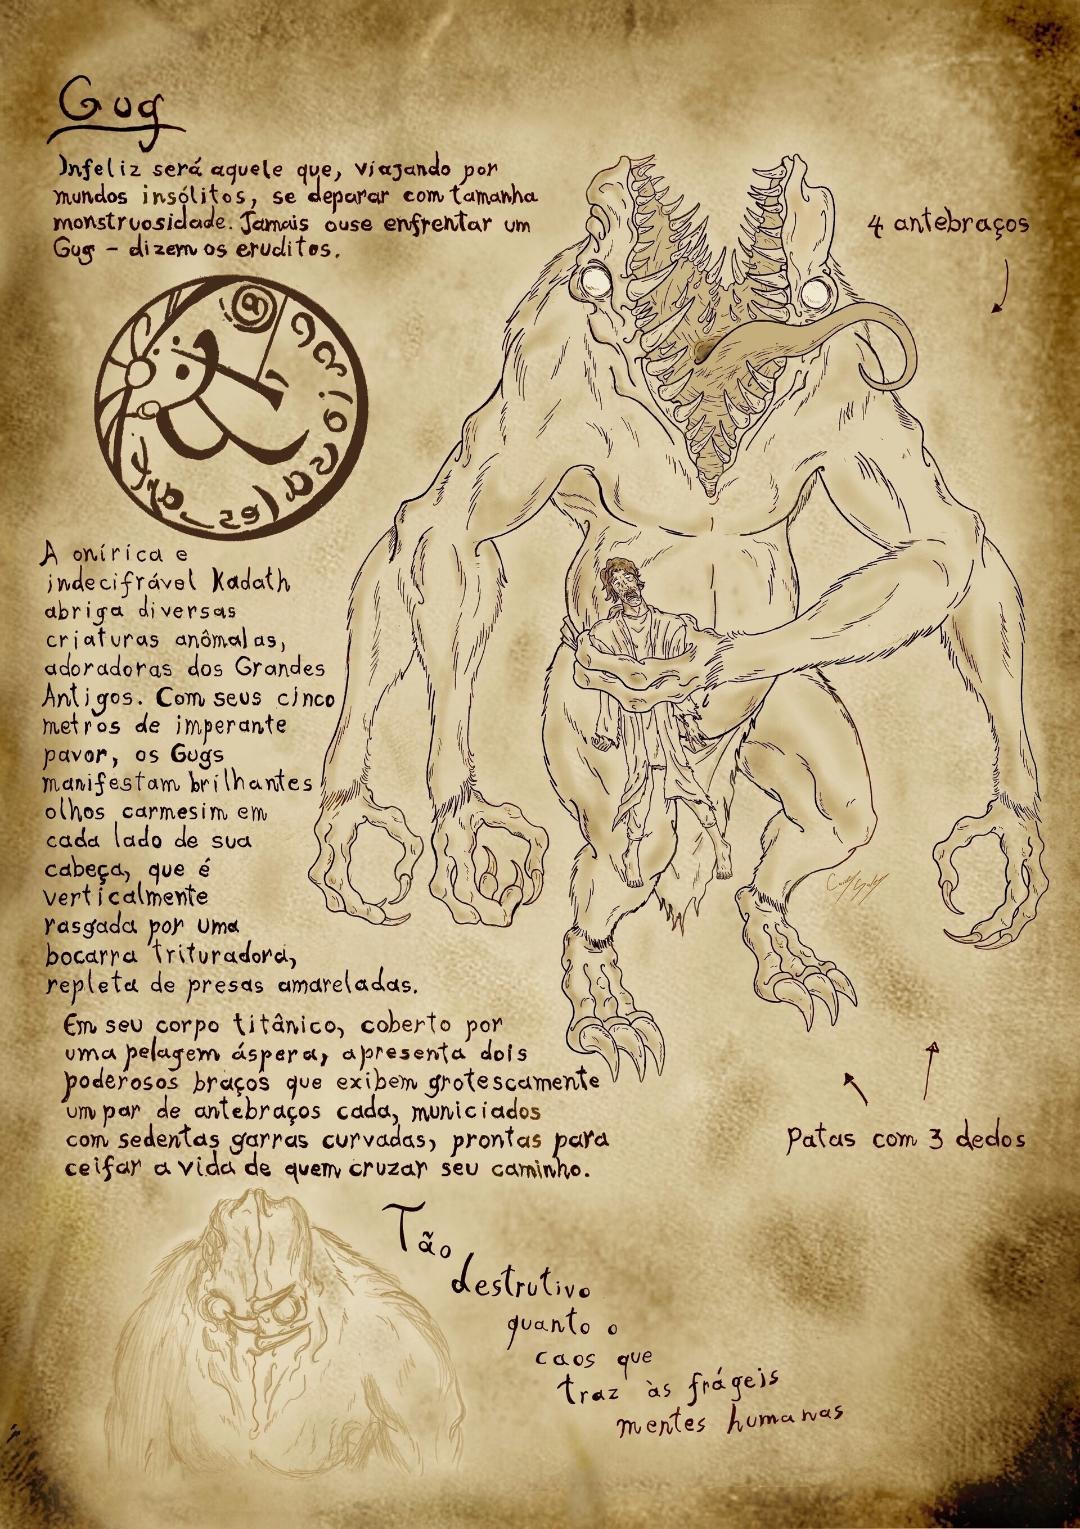 Gug
Infeliz será aquele que, viajando por
mundos insólitos, se deparar com tamanha
monstruosidade. Jamais ouse enfrentar um
Gug – dizem os eruditos.
4 antebraços
A onírica e
indecifrável Kadath
abriga diversas
criaturas anômalas,
adoradoras dos Grandes
Antigos. Com seus cinco
metros de imperante
pavor, os Gugs
manifestam brilhantes
olhos carmesim em
cada lado de sua
cabeça, que é
verticalmente
rasgada por uma
bocarra trituradora,
repleta de presas amareladas.
Em seu corpo titânico, coberto por
uma pelagem áspera, apresenta dois
poderosos braços que exibem grotescamente
um par de antebraços cada, municiados
com sedentas garras curvadas, prontas para
ceifar a vida de quem cruzar seu caminho.
Patas com 3 dedos
Tão
destrutivo
quanto o
caos que
traz às frágeis
mentes humanas